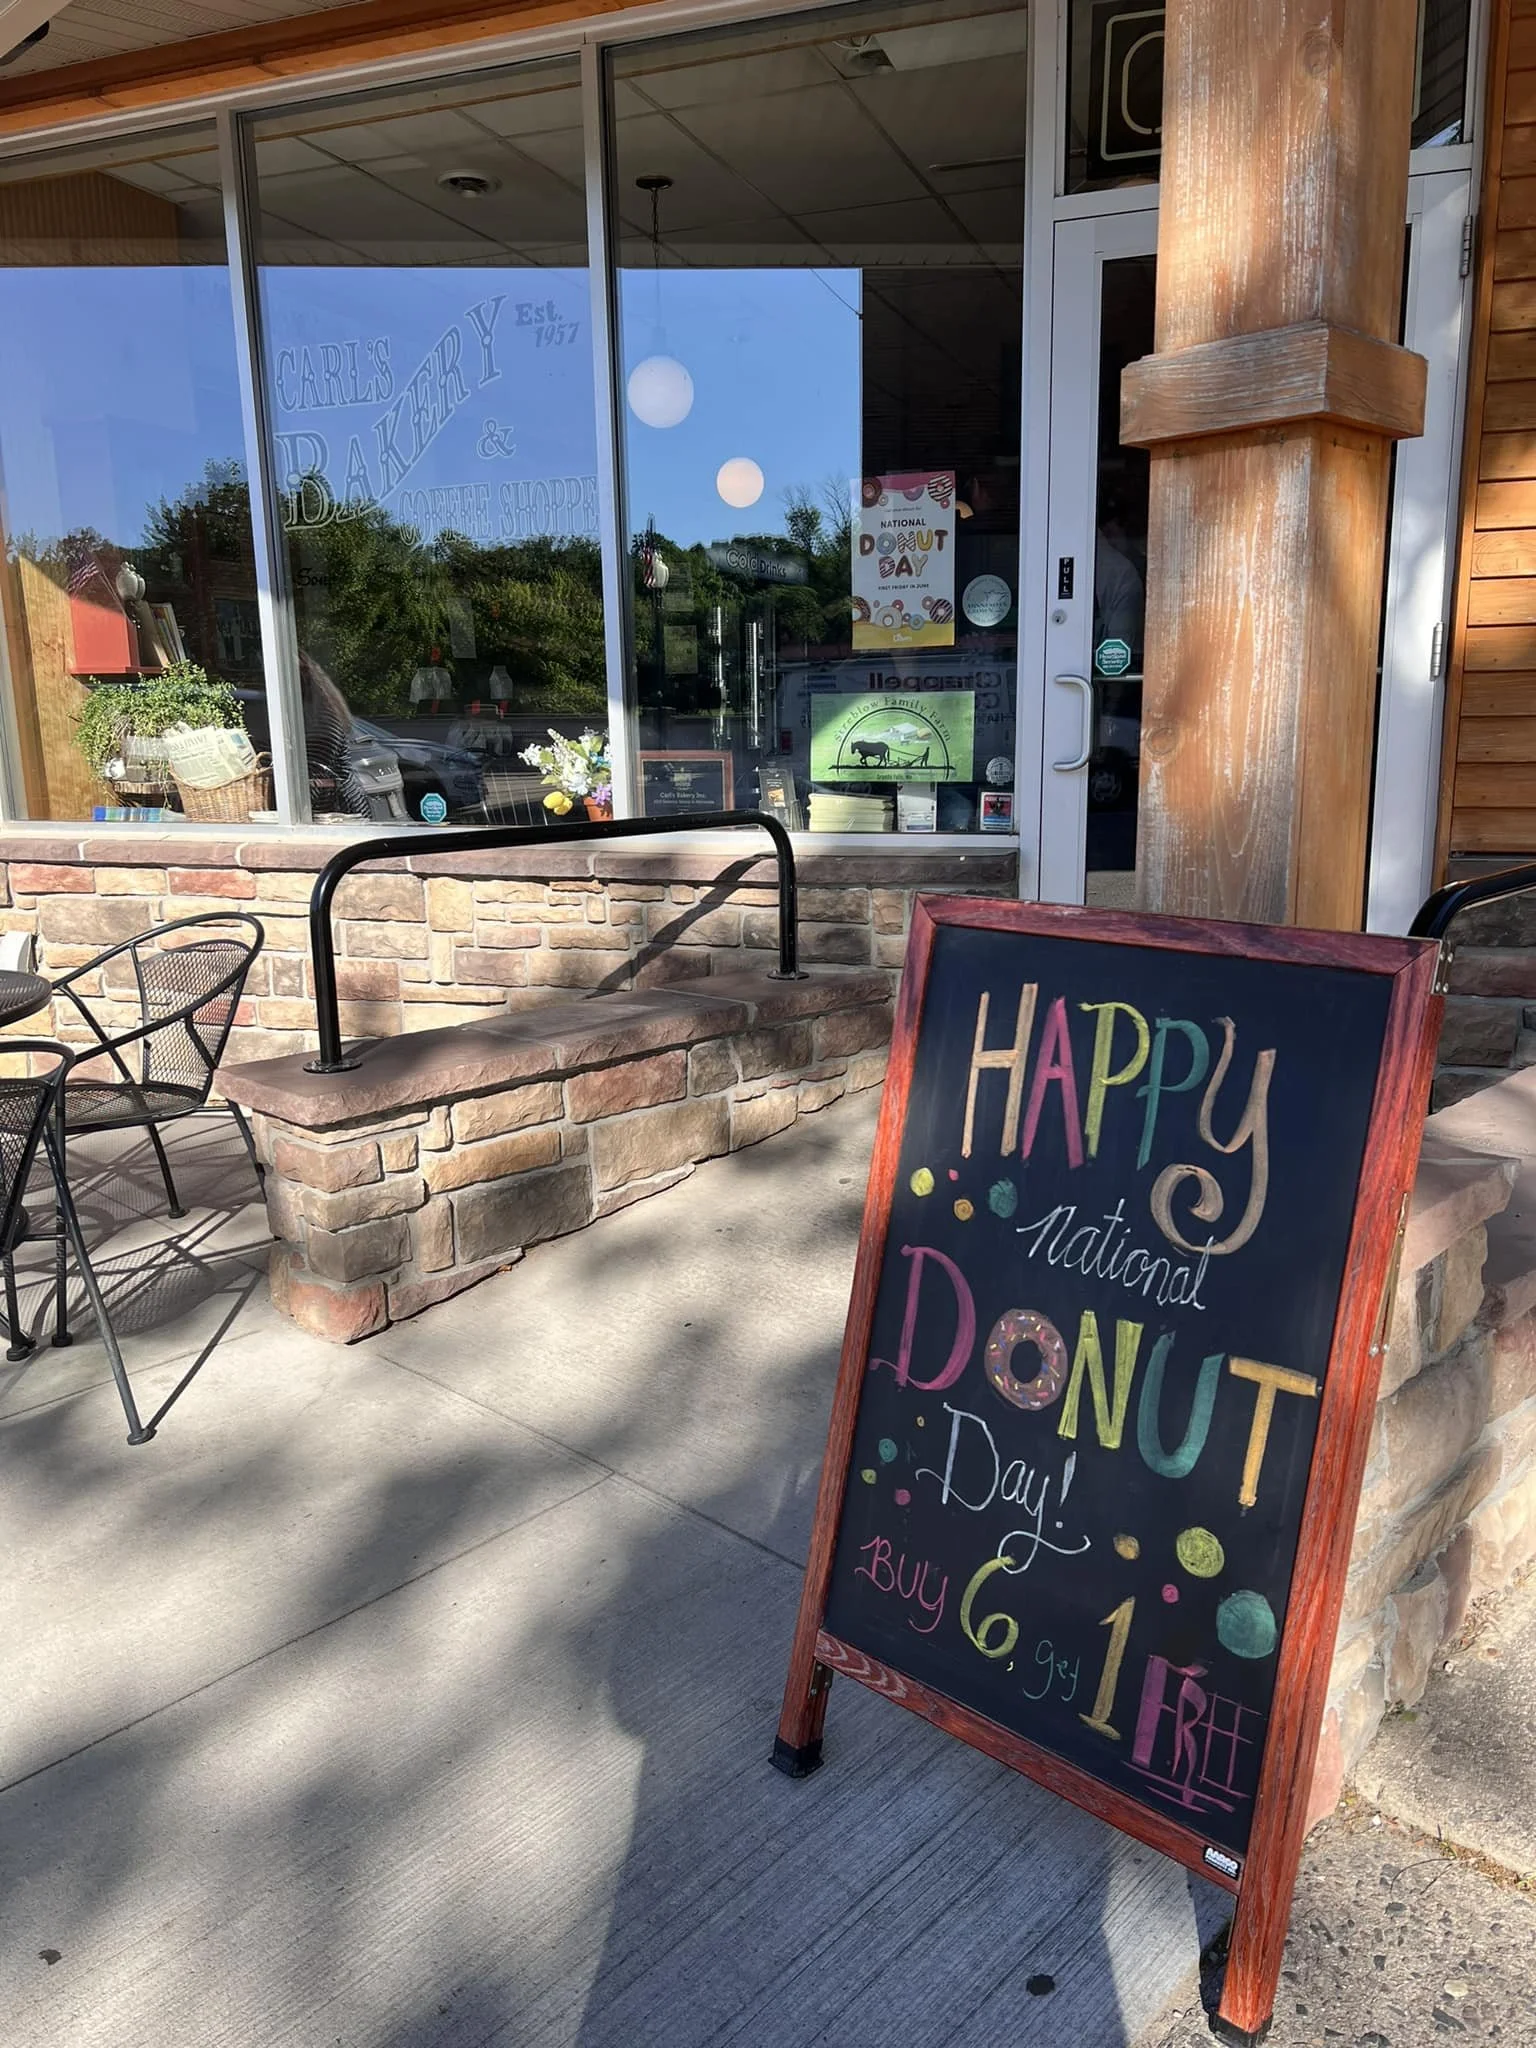 CARL'S
BAKERY
Est.
1957
&
COFFEE SHOPPE
Cold Drinks
NATIONAL
DONUT
DAY
FIRST FRIDAY IN JUNE
MINNESOTA
GROWN
PULL
Streblow Family Farm
Granite Falls, Mn
Carl's Bakery Inc.
HAPPY
national
DONUT
Day!
BUY 6, get 1 FREE